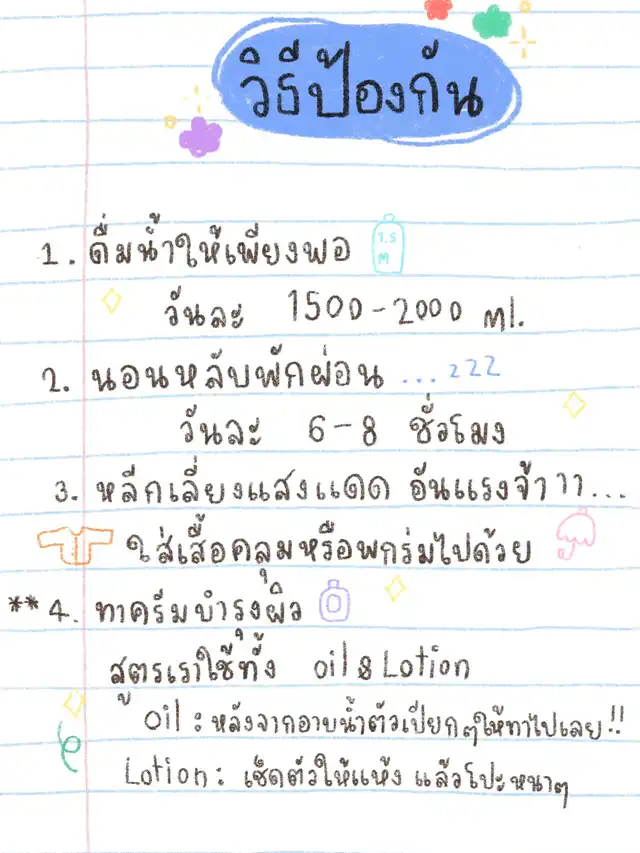 วิธีป้องกัน
1. ดื่มน้ำให้เพียงพอ
1.5
M
วันละ 1500-2000 ml.
2. นอนหลับพักผ่อน ... zzz
วันละ 6-8 ชั่วโมง
3. หลีกเลี่ยงแสงแดด อันแรงจ้าาา...
ใส่เสื้อคลุมหรือพกร่มไปด้วย
**4. ทาครีมบำรุงผิว
สูตรเราใช้ทั้ง oil & Lotion
Oil : หลังจากอาบน้ำตัวเปียกๆให้ทาไปเลย!!
Lotion : เช็ดตัวให้แห้ง แล้วโปะหนาๆ